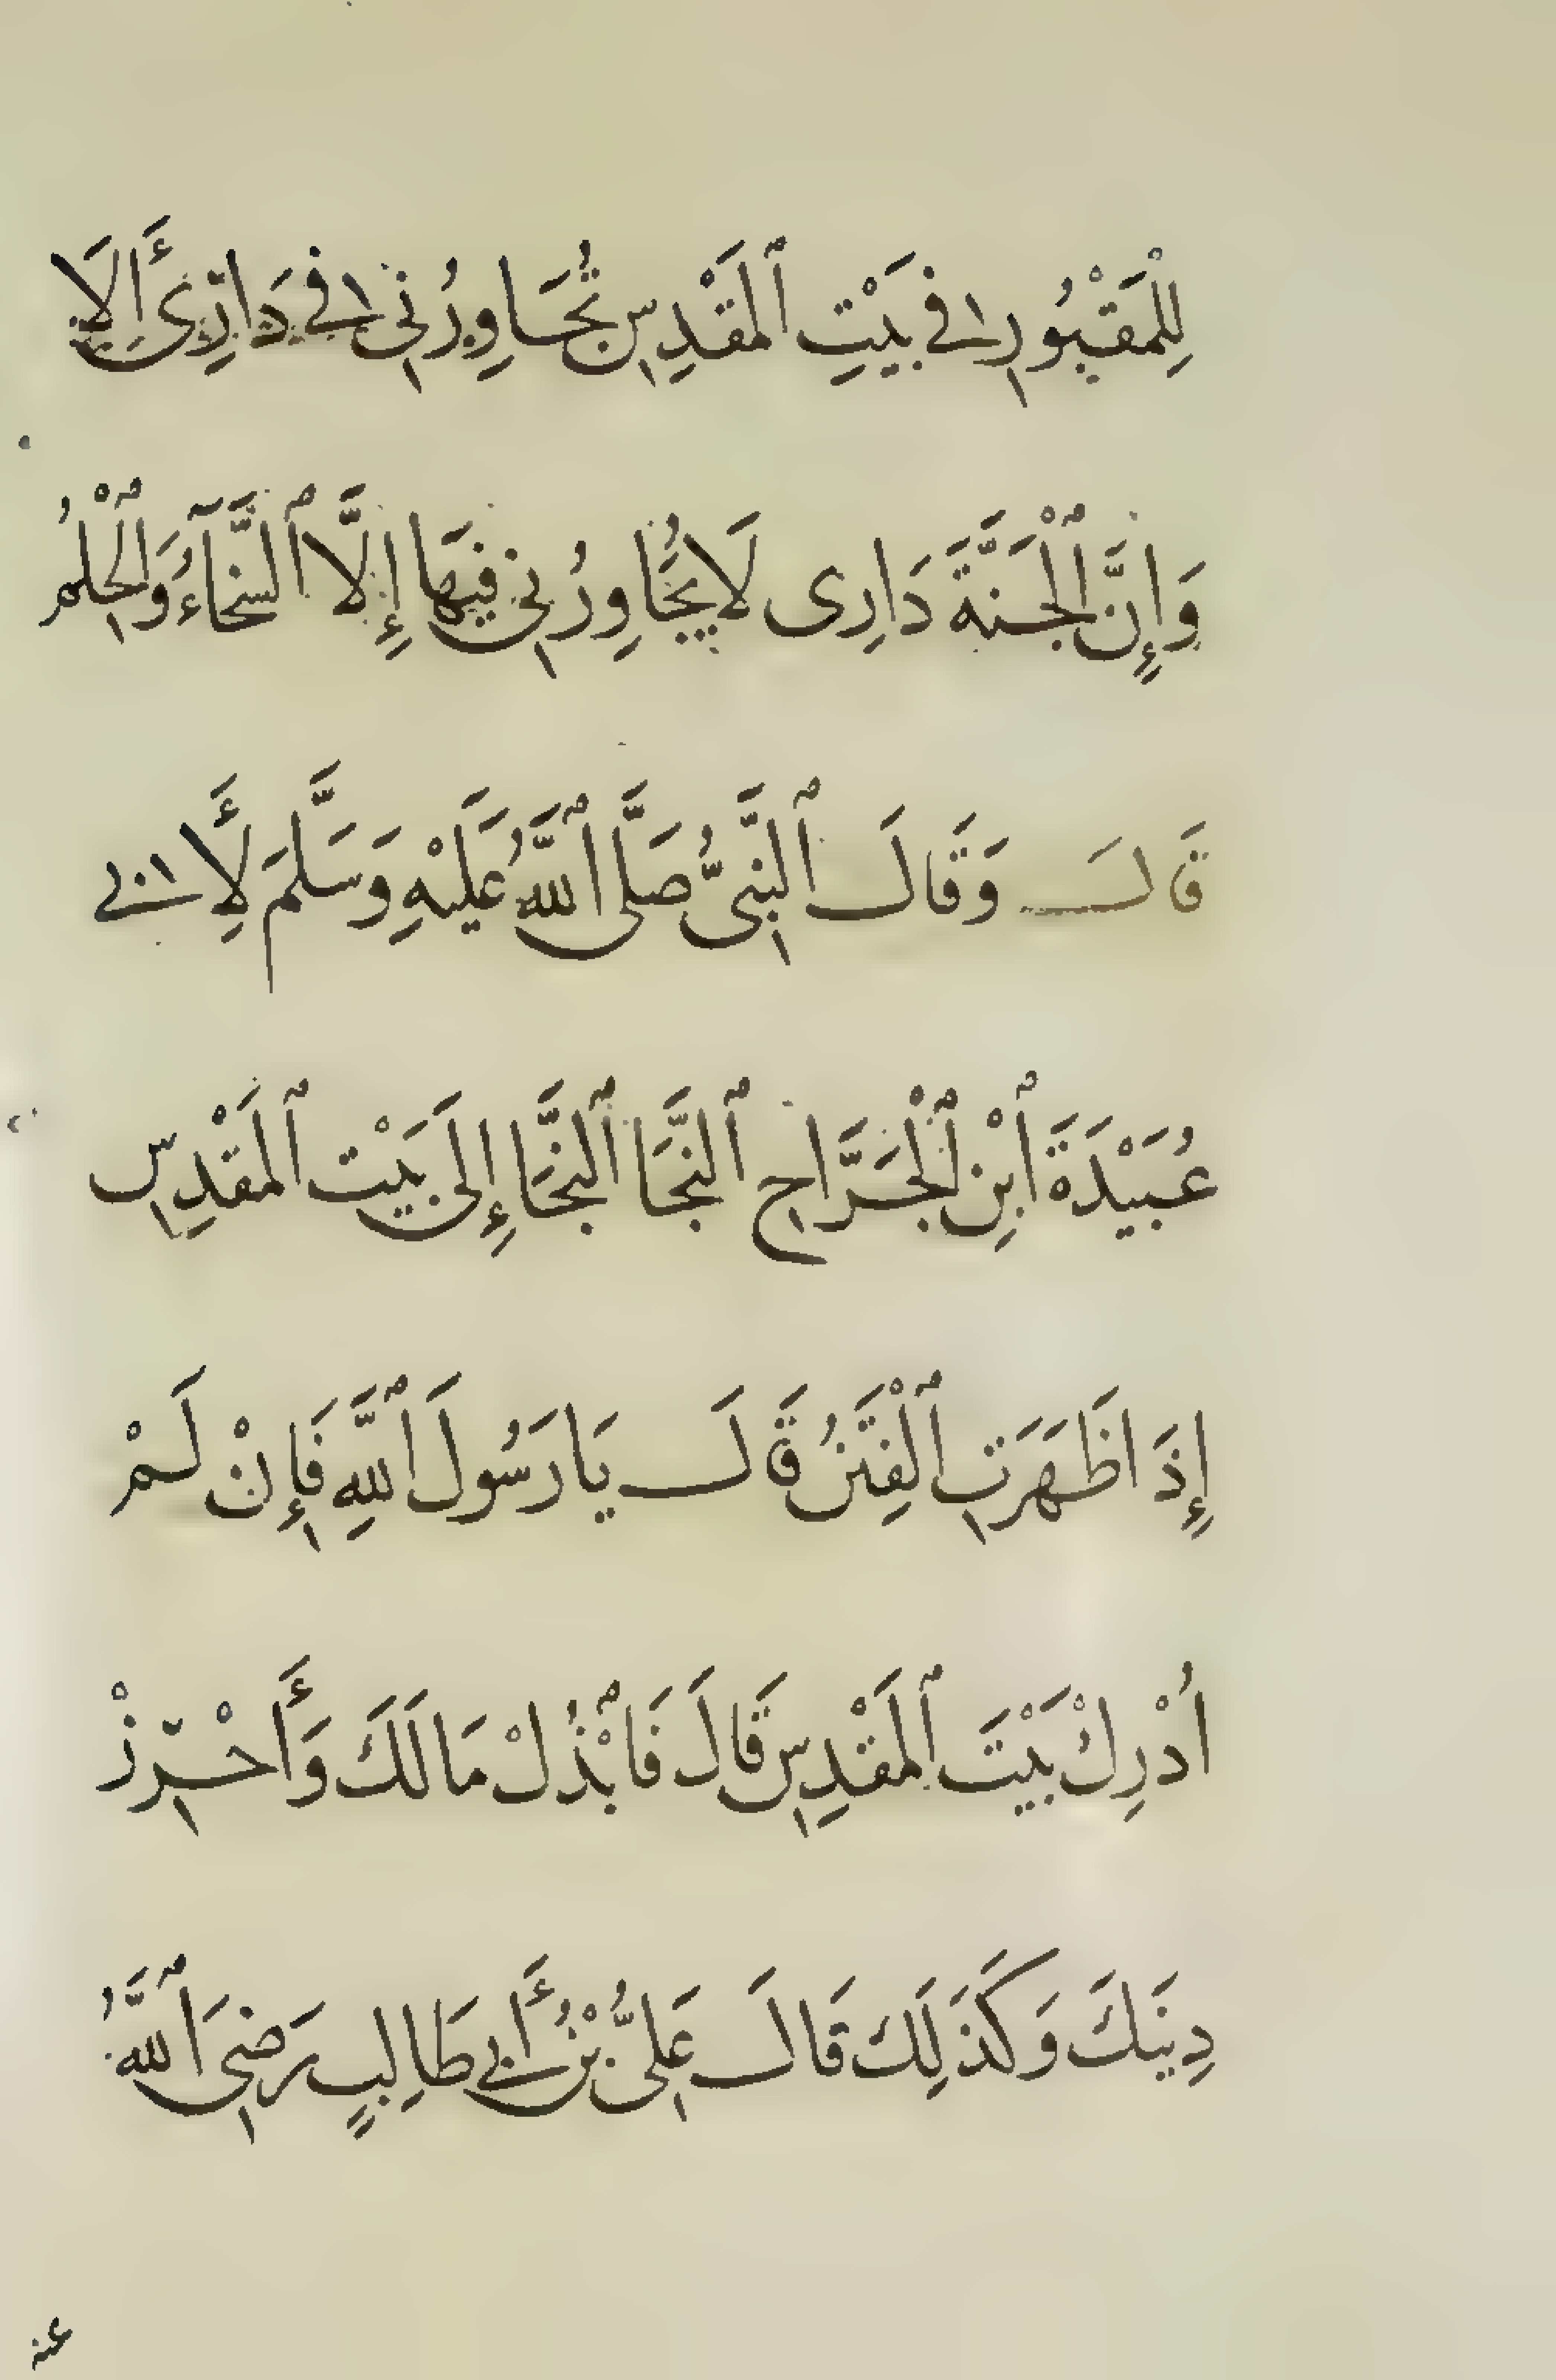 لِلْمَقْبُورِ فِي بَيْتِ ٱلمَقْدِسِ تُجَاوِرُنِي فِي دَارِي أَلَا
وَإِنَّ ٱلْجَنَّةَ دَارِى لَا يُجَاوِرُنِي فِيهَا إِلَّا ٱلسَّخَآءُ وَٱلْحِلمُ
قَالَ وَقَالَ ٱلنَّبِىُّ صَلَّى ٱللَّهُ عَلَيْهِ وَسَلَّمَ لِأَبِي
عُبَيْدَةَ ٱبْنِ ٱلْجَرَّاحِ ٱلنَّجَا ٱلنَّجَا إِلَى بَيْتِ ٱلمَقْدِسِ
إِذَا ظَهَرَتِ ٱلْفِتَنُ قَالَ يَا رَسُولَ ٱللَّهِ فَإِنْ لَمْ
أُدْرِكْ بَيْتَ ٱلمَقْدِسِ قَالَ فَٱبْذُلْ مَالَكَ وَأَحْرِزْ
دِينَكَ وَكَذَلِكَ قَالَ عَلِىُّ بْنُ أَبِي طَالِبٍ رَضِيَ ٱللَّهُ
عنه